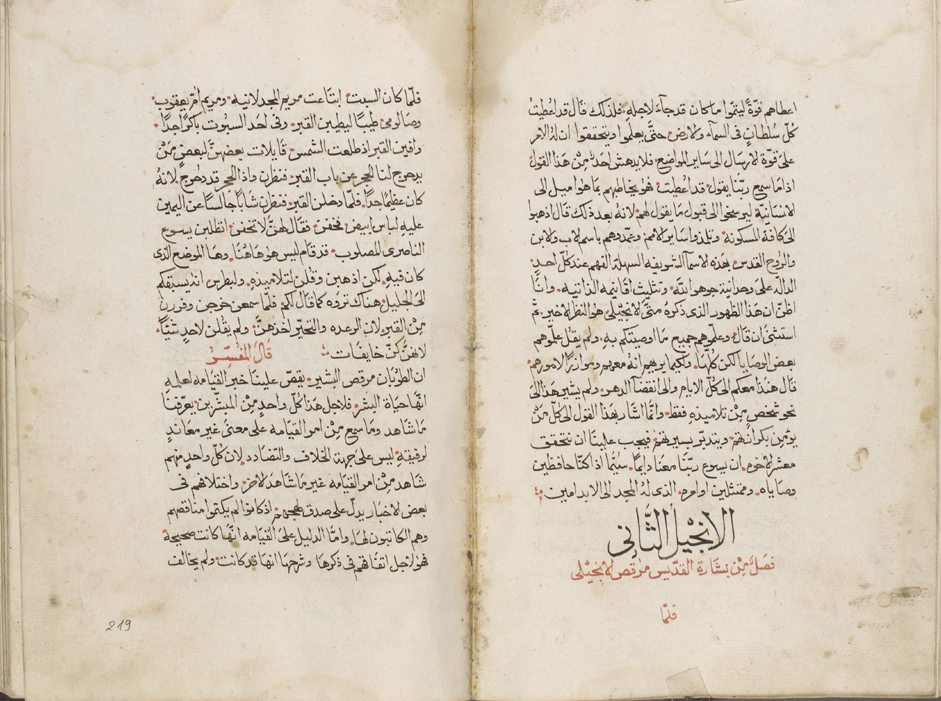 اعطاهم قوة ليتموا ما كان قد جاء لاجله فلذلك قال قد اعطيت
كل سلطان في السماء والارض حتى يعلموا ويتحققوا ان له الامر
على قوة الارسال الى ساير المواضع فلا يدهش احد من هذا القول
اذا ما سمع ربنا يقول قد اعطيت هو يخاطبهم بما هو اميل الى
الانسانية ليرسخوا الى قبول ما يقول لهم لانه بعد ذلك قال اذهبوا
الى كافة المسكونة وتلمذوا ساير الامم وعمدوهم باسم الاب والابن
والروح القدس بهذه الاسما الشريفه السهلة الفهم عند كل احد
الدالة على وحدانية جوهر الله وتثليث اقانيمه الذاتية وانا
اظن ان هذا الظهور الذي ذكره متى الانجيلي هو النظر الاخير ثم
استثنى ان قال وعلموهم جميع ما اوصيتكم به ولم يقل علموهم
بعض الوصايا لكن كلها ولكيما يريهم انه معهم وموازر الامورهم
قال هانذا معكم الى كل الايام والى انقضا الدهر ولم يشير هذا الى
نحو شخص من تلاميذه فقط وانما اشار بهذا القول الى كل من
يومن بكرازتهم ويتدبر بسيرتهم فيجب علينا ان نتحقق
معشر الاخوه ان يسوع ربنا معنا دايما سيما اذ كنا حافظين
وصاياه وممتثلين اوامره الذي له المجد الى الابد امين
الانجيل الثاني
فصل من بشارة القديس مرقص الانجيلي
فلما
فلما كان السبت ابتاعت مريم المجدلانيه ومريم ام يعقوب
وصالومي طيبا ليطيبن القبر وفي احد السبوت باكرا جدا
وافين القبر اذ طلعت الشمس قايلات بعضهن لبعض من
يدحرج لنا الحجر عن باب القبر فنظرن واذا الحجر قد دحرج لانه
كان عظيما جدا فلما دخلن القبر فنظرن شابا جالسا عن اليمين
عليه لباس ابيض فخفن فقال لهن لا تخفن انطلبن يسوع
الناصري المصلوب قد قام ليس هو هاهنا وها الموضع الذي
كان فيه لكن اذهبن وقلن لتلاميذه ولبطرس انه يسبقكم
الى الجليل هناك تروه كما قال لكم فلما سمعن خرجن وفررن
من القبر لان الرعده والتحير اخذهن ولم يقلن لاحد شيا
لانهن كن خايفات قال المفسر
ان الطوبان مرقص البشير يقص علينا خبر القيامه لعلمه
انها حياة البشر فلاجل هذا كل واحد من المبشرين يعرفنا
ما شاهد وما سمع من امر القيامه على معنى غير معاند
لرفيقه ليس على جهة الخلاف والتضادد لان كل واحد منهم
شاهد من امر القيامه غير ما شاهد الاخر واختلافهم في
بعض الاخبار يدل على صدق اذ كانوا لم يكتموا مناقصهم
وهم الكاتبون لها واما الدليل على القيامه انها كانت صحيحة
فهو لاجل اتفاقهم في ذكرها وشرحها انها قد كانت ولم يخالف
219